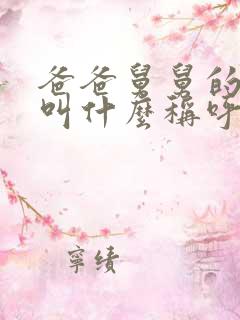 爸爸舅舅的
叫什麼稱呼
寧績